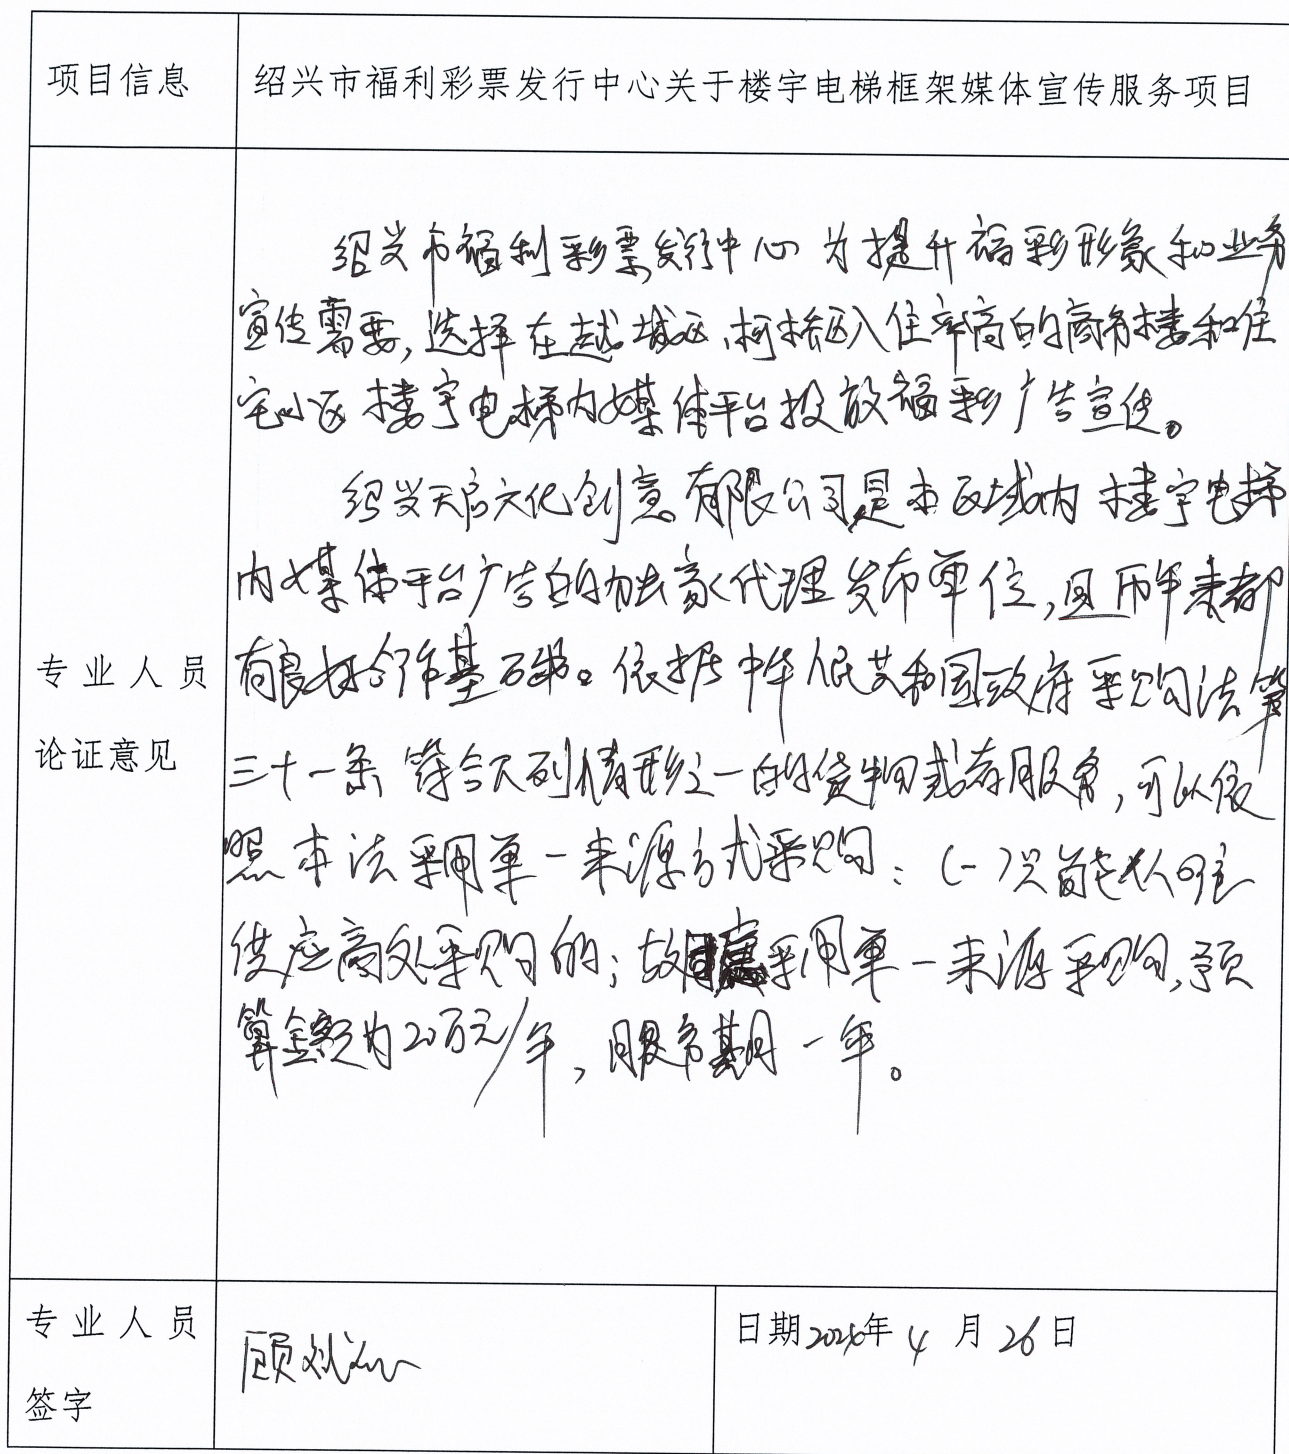 项目信息
绍兴市福利彩票发行中心关于楼宇电梯框架媒体宣传服务项目
专业人员
论证意见
绍兴市福利彩票发行中心为提升福彩形象和业务
宣传需要,选择在越城区、柯桥区入住率高的商务楼和住
宅小区楼宇电梯内媒体平台投放福彩广告宣传。
绍兴天启文化创意有限公司是本区域内楼宇电梯
内媒体平台广告的独家代理发布单位,且历年来都
有良好合作基础。依据中华人民共和国政府采购法第
三十一条 符合下列情形之一的货物或者服务,可以依
照本法采用单一来源方式采购:(一)只能从唯一
供应商处采购的;故采用单一来源采购,预
算金额为20万元/年,服务期一年。
专业人员
签字
顾
日期 年 4 月 26 日